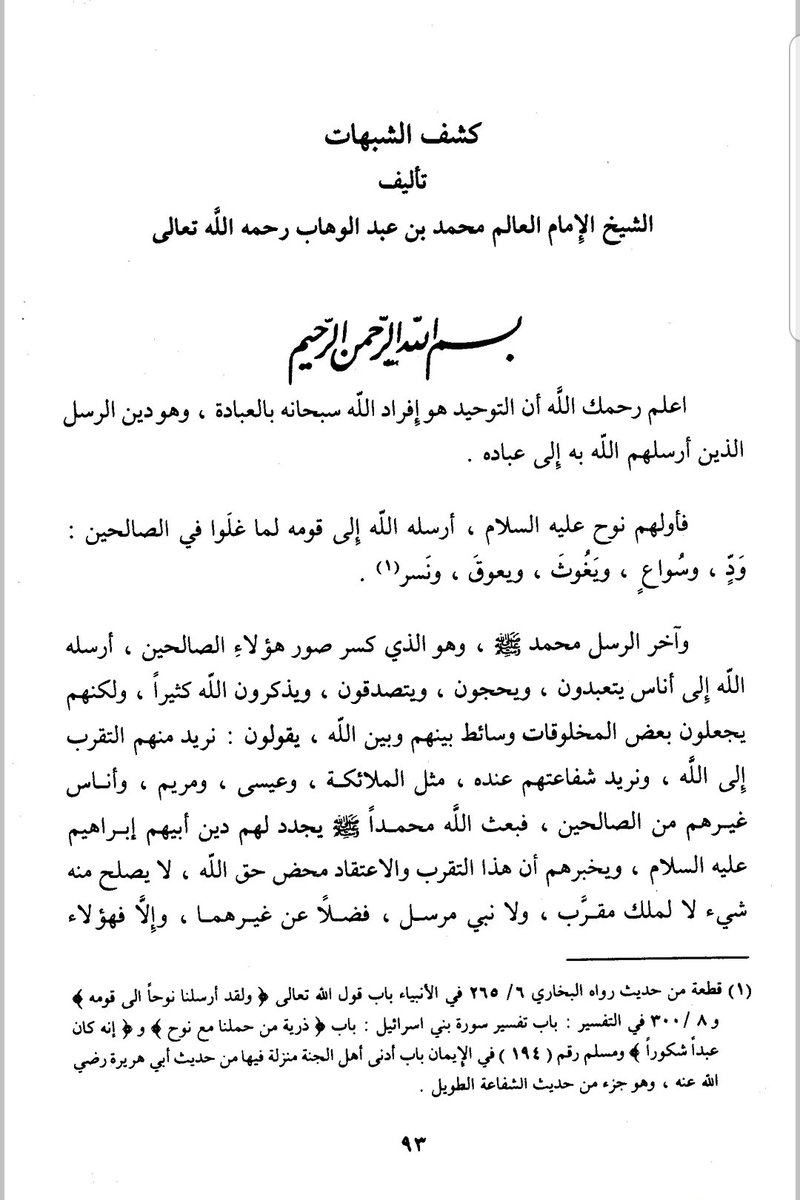 كشف الشبهات
تأليف
الشيخ الإمام العالم محمد بن عبد الوهاب رحمه اللَّه تعالى
بسم الله الرحمن الرحيم
اعلم رحمك اللَّه أن التوحيد هو إفراد اللّه سبحانه بالعبادة ، وهو دين الرسل
الذين أرسلهم اللّه به إلى عباده .
فأولهم نوح عليه السلام ، أرسله اللّه إلى قومه لما غلَوا في الصالحين :
وَدٍّ ، وسُواعٍ ، ويَغُوثَ ، ويعوقَ ، ونَسر(١) .
وآخر الرسل محمد ﷺ ، وهو الذي كسر صور هؤلاءِ الصالحين ، أرسله
اللّه إلى أناس يتعبدون ، ويحجون ، ويتصدقون ، ويذكرون اللّه كثيراً ، ولكنهم
يجعلون بعض المخلوقات وسائط بينهم وبين اللّه ، يقولون : نريد منهم التقرب
إلى اللّه ، ونريد شفاعتهم عنده ، مثل الملائكة ، وعيسى ، ومريم ، وأناس
غيرهم من الصالحين ، فبعث اللَّه محمداً ﷺ يجدد لهم دين أبيهم إبراهيم
عليه السلام ، ويخبرهم أن هذا التقرب والاعتقاد محض حق اللّه ، لا يصلح منه
شيء لا لملك مقرَّب ، ولا نبي مرسل ، فضلاً عن غيرهما ، وإلَّا فهؤلاء
(١) قطعة من حديث رواه البخاري ٦/ ٢٦٥ في الأنبياء باب قول الله تعالى ﴿ ولقد أرسلنا نوحاً الى قومه ﴾
و ٨ / ٣٠٠ في التفسير : باب تفسير سورة بني اسرائيل : باب ﴿ ذرية من حملنا مع نوح ﴾ و ﴿ إنه كان
عبداً شكوراً ﴾ ومسلم رقم ( ١٩٤ ) في الإيمان باب أدنى أهل الجنة منزلة فيها من حديث أبي هريرة رضي
الله عنه ، وهو جزء من حديث الشفاعة الطويل .
٩٣